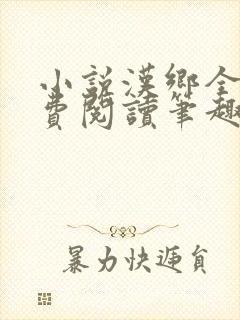 小說漢鄉全
費閱讀筆趣
暴力快遞員